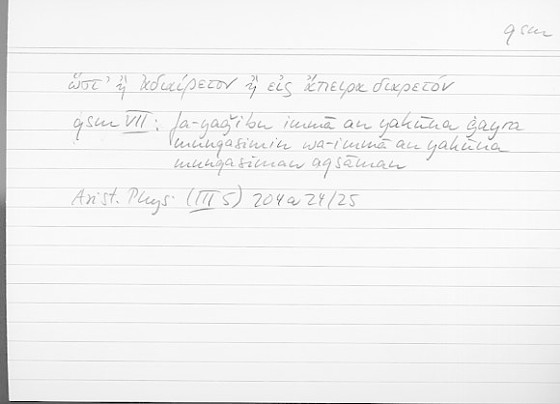 qsm
ὥστ' ἢ ἀδιαίρετον ἢ εἰς ἄπειρα διαιρετόν
qsm VII: fa-yaǧibu immā an yakūna ġayra
munqasimin wa-immā an yakūna
munqasiman aqsāman
Arist. Phys. (III 5) 204a24/25